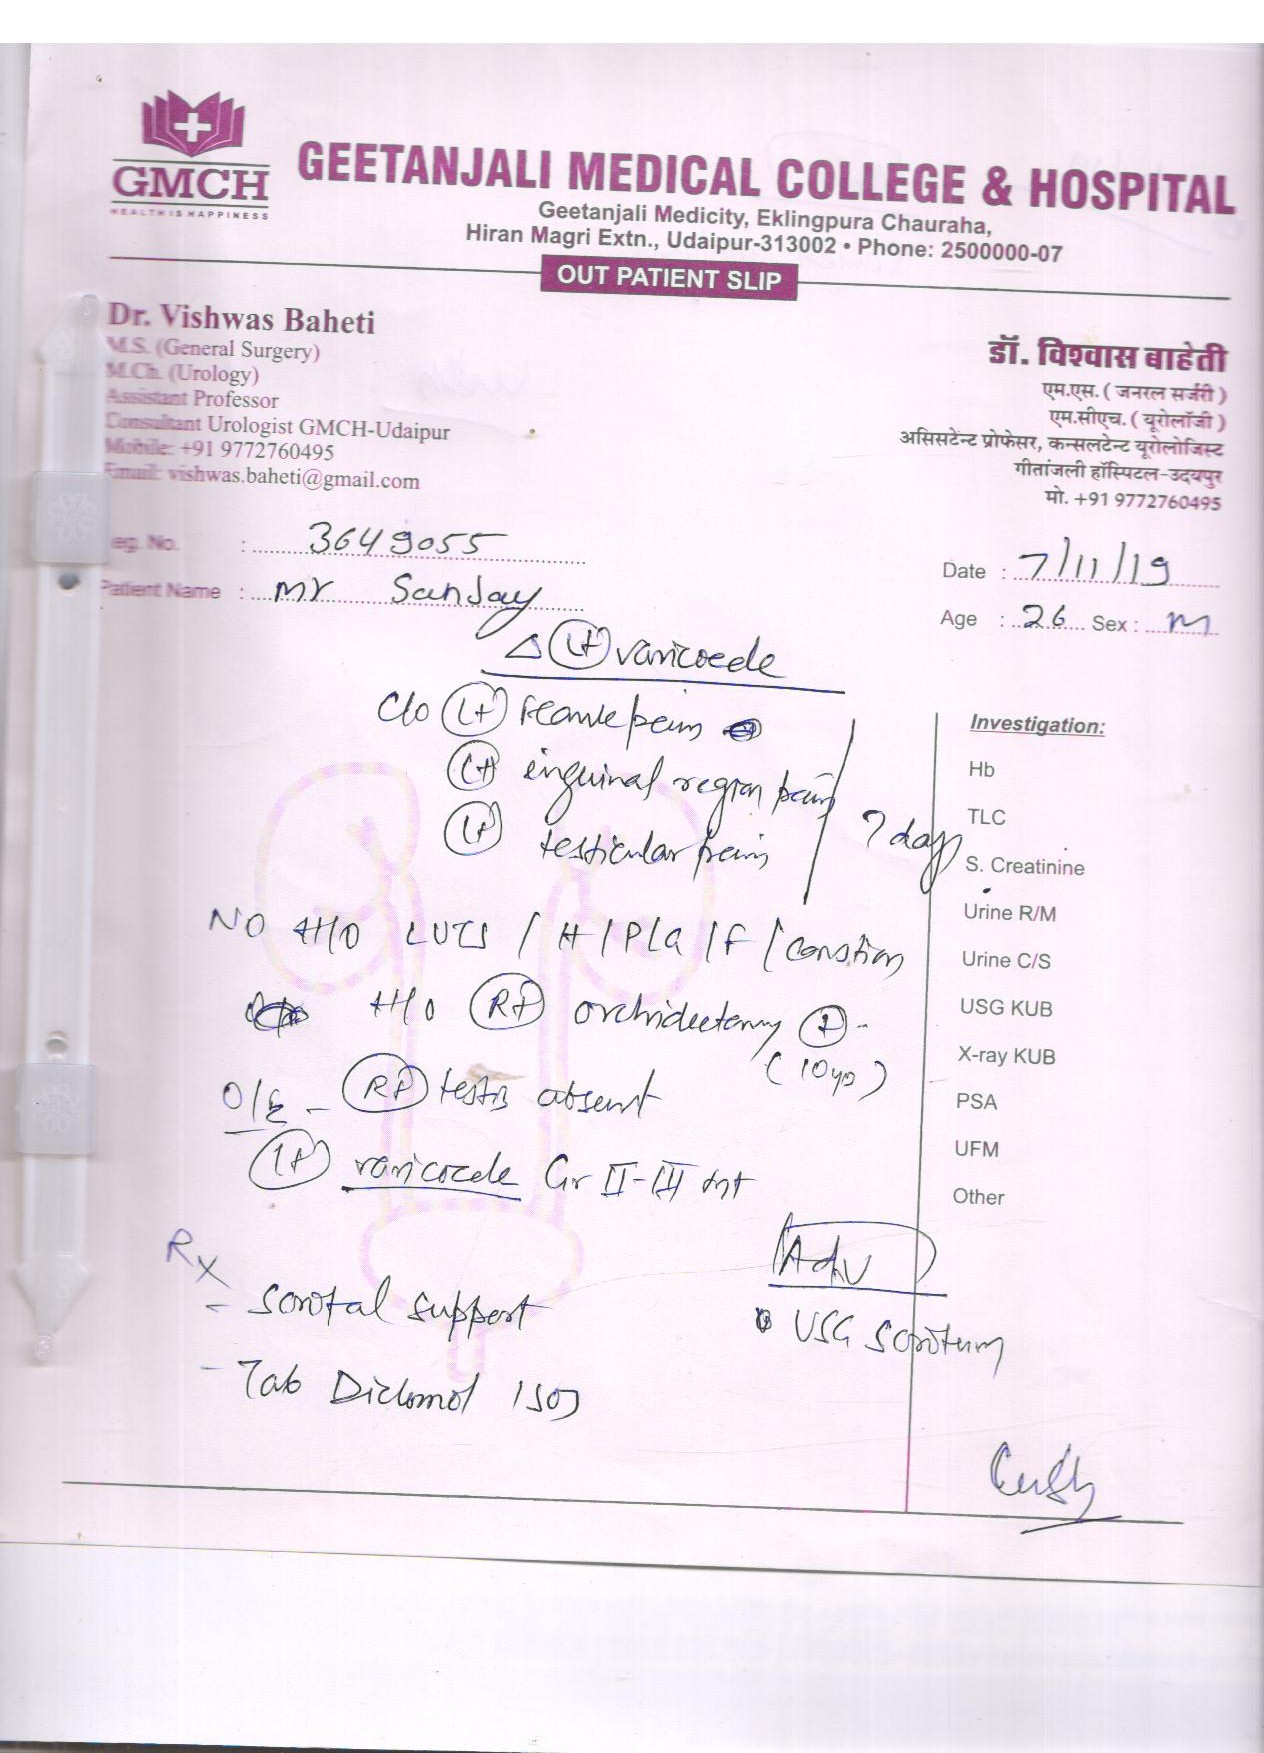 GMCH
HEALTH IS HAPPINESS
GEETANJALI MEDICAL COLLEGE & HOSPITAL
Geetanjali Medicity, Eklingpura Chauraha,
Hiran Magri Extn., Udaipur-313002 • Phone: 2500000-07
OUT PATIENT SLIP
Dr. Vishwas Baheti
M.S. (General Surgery)
M.Ch. (Urology)
Assistant Professor
Consultant Urologist GMCH-Udaipur
Mobile: +91 9772760495
Email: vishwas.baheti@gmail.com
डॉ. विश्वास बाहेती
एम.एस. ( जनरल सर्जरी )
एम.सीएच. ( यूरोलॉजी )
असिसटेन्ट प्रोफेसर, कन्सलटेन्ट यूरोलोजिस्ट
गीतांजली हॉस्पिटल-उदयपुर
मो. +91 9772760495
eg. No. : 3649055
Patient Name : Mr Sanjay
Date : 7/11/19
Age : 26 Sex : M
Δ Lt varicocele
C/o Lt pain
Lt inguinal region pain
Lt testicular pain
7 days
NO H/O LUTS / H / P / G / F /
H/O Rt orchidectomy
(10yo)
O/E - Rt testis absent
Lt varicocele Gr II-III
Rx
- Scrotal support
- Tab Diclomol
Adv
USG Scrotum
Investigation:
Hb
TLC
S. Creatinine
Urine R/M
Urine C/S
USG KUB
X-ray KUB
PSA
UFM
Other